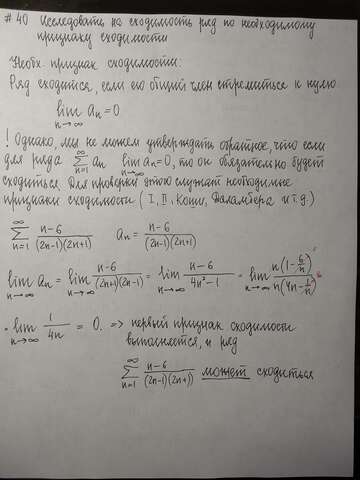 # 40 Исследовать на сходимость ряд по необходимому
признаку сходимости
Необх. признак сходимости:
Ряд сходится, если его общий член стремиться к нулю
lim_{n→∞} a_n = 0
! Однако, мы не можем утверждать обратное, что если
для ряда ∑_{n=1}^{∞} a_n lim_{n→∞} a_n = 0, то он обязательно будет
сходиться. Для проверки этого служат необходимые
признаки сходимости (I, II, Коши, Даламбера и т.д.)
∑_{n=1}^{∞} (n-6)/((2n-1)(2n+1)) a_n = (n-6)/((2n-1)(2n+1))
lim_{n→∞} a_n = lim_{n→∞} (n-6)/((2n+1)(2n-1)) = lim_{n→∞} (n-6)/(4n²-1) = lim_{n→∞} n(1-6/n)/n(4n-1/n) =
= lim_{n→∞} 1/4n = 0. => первый признак сходимости
выполняется, и ряд
∑_{n=1}^{∞} (n-6)/((2n-1)(2n+1)) может сходиться